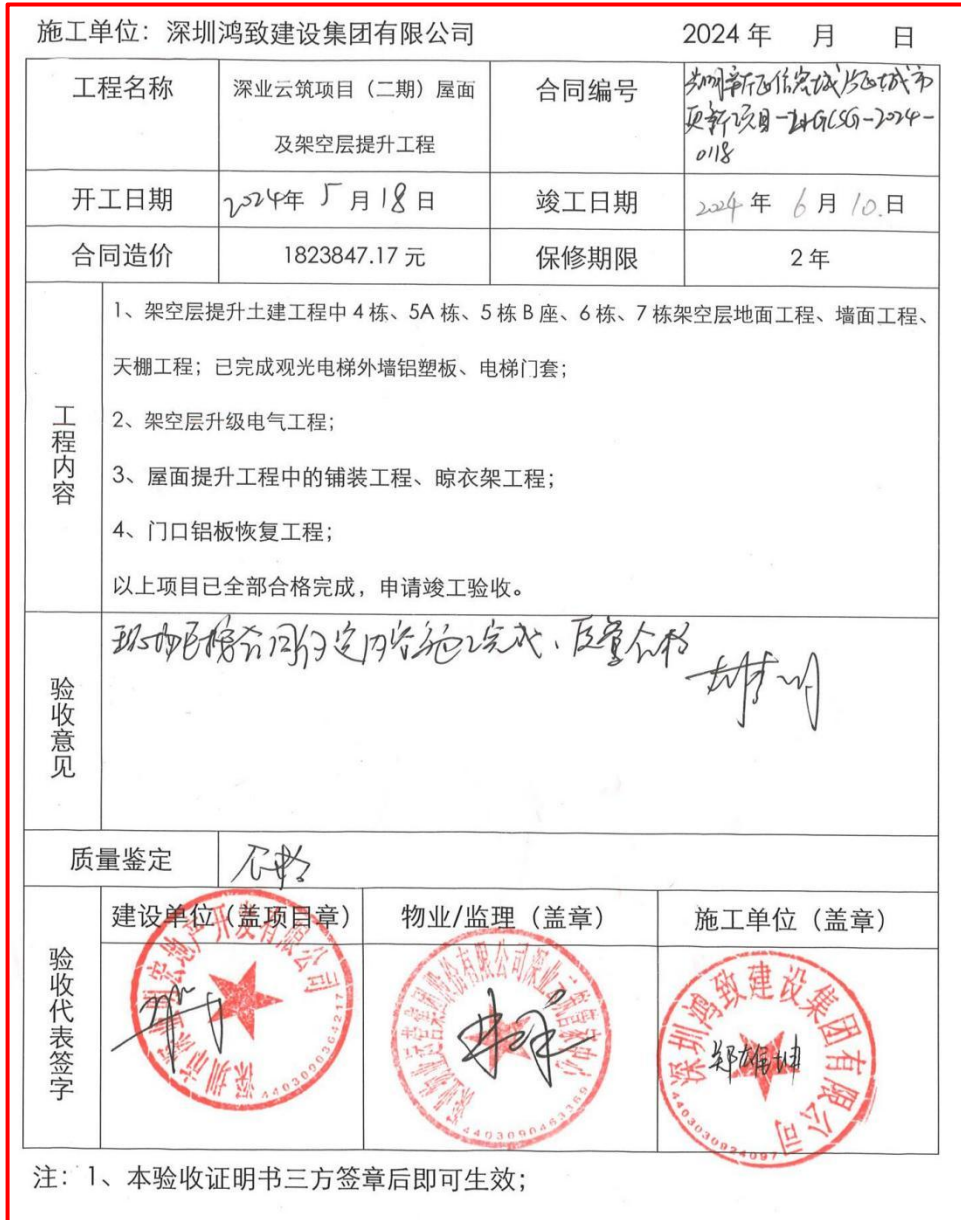 施工单位：深圳鸿致建设集团有限公司 2024 年 月 日
工程名称 深业云筑项目（二期）屋面
及架空层提升工程
合同编号
更新项目-GCSG-2024-
0118
开工日期 2024年 5 月 18 日 竣工日期 2024 年 6 月 10.日
合同造价 1823847.17 元 保修期限 2 年
工程内容
1、架空层提升土建工程中 4 栋、5A 栋、5 栋 B 座、6 栋、7 栋架空层地面工程、墙面工程、
天棚工程；已完成观光电梯外墙铝塑板、电梯门套；
2、架空层升级电气工程；
3、屋面提升工程中的铺装工程、晾衣架工程；
4、门口铝板恢复工程；
以上项目已全部合格完成，申请竣工验收。
验收意见
现场已按合同约定内容施工完成、质量合格
质量鉴定 合格
验收代表签字
建设单位（盖项目章） 物业/监理（盖章） 施工单位（盖章）
4403090364217
4403090463369
深圳鸿致建设集团有限公司
郑雄坤
4403030924097
注：1、本验收证明书三方签章后即可生效；